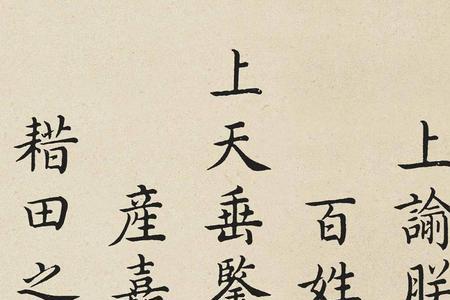 上諭朕
百姓
上天垂鑒
産嘉
耤田之